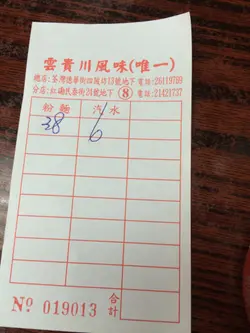 雲貴川風味(唯一)
總店:荃灣德華街四陂坊13號地下 電話:26119799
分店:紅磡民泰街24號地下 ⑧ 電話:21421737
粉麵 汽水
38 6
合計
No 019013